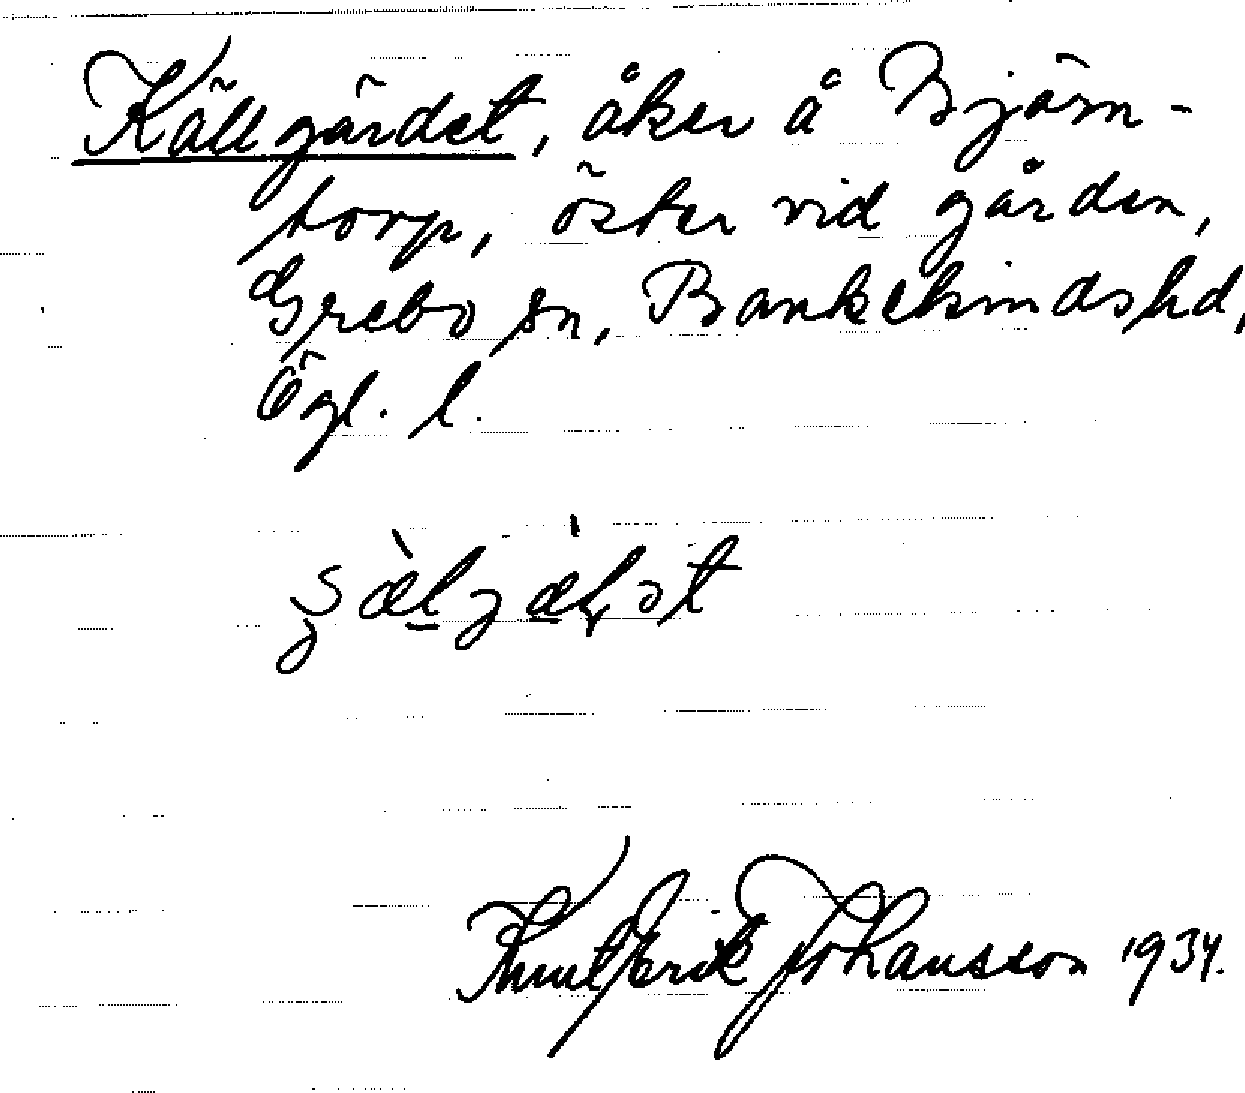 Källgärdet, åker å Björn-
torp, öster vid gården,
Grebo sn, Bankekinds hd,
Ögl. l.
Knut Erik Johansson 1934.